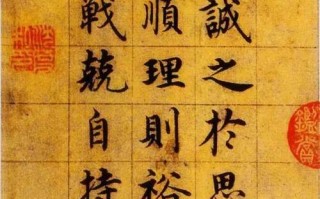 誠之於思
順理則裕
戰兢自持